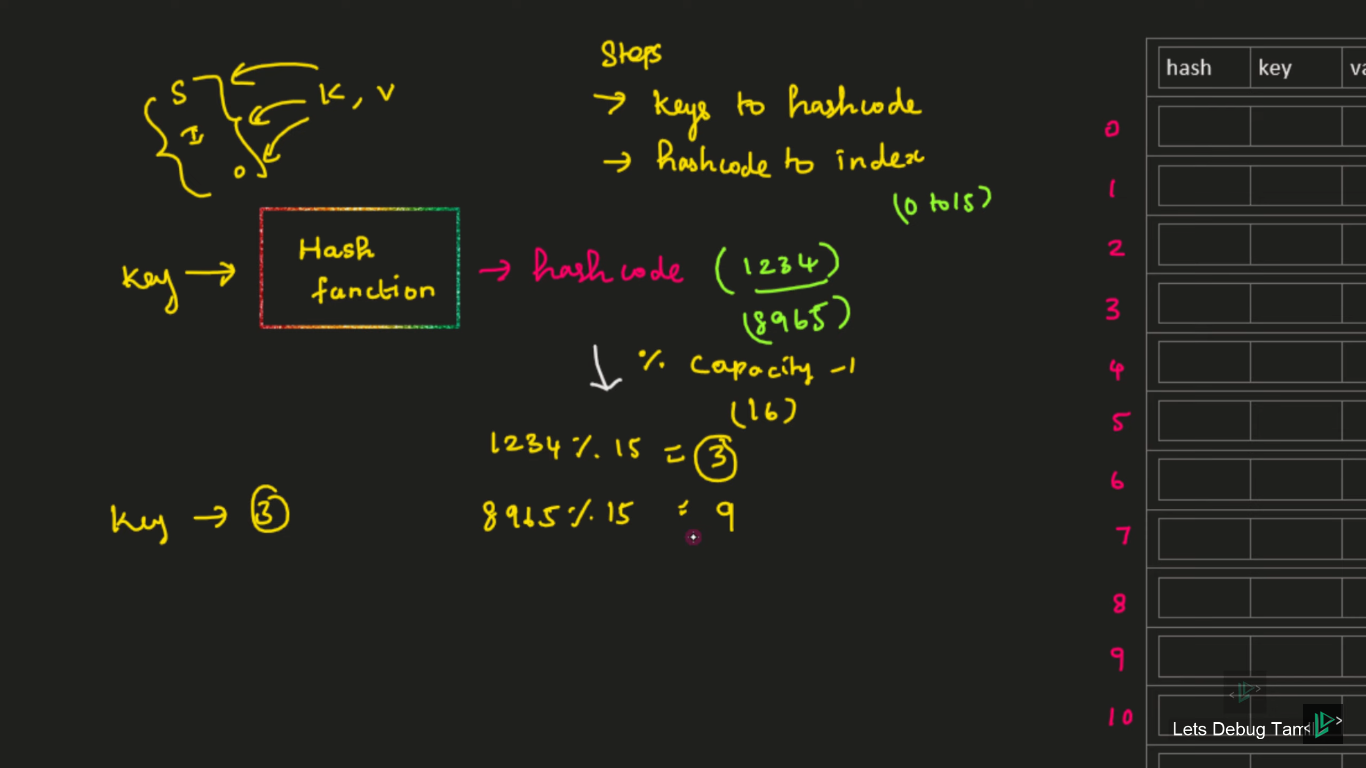 Steps
→ keys to hashcode
→ hashcode to index
(0 to 15)
S
I
O
K, V
Key →
Hash
function
→ hashcode (1234)
(8965)
% Capacity -1
(16)
1234 % 15 = 3
8965 % 15 = 9
Key → 3
hash key va
0
1
2
3
4
5
6
7
8
9
10
Lets Debug Tamil